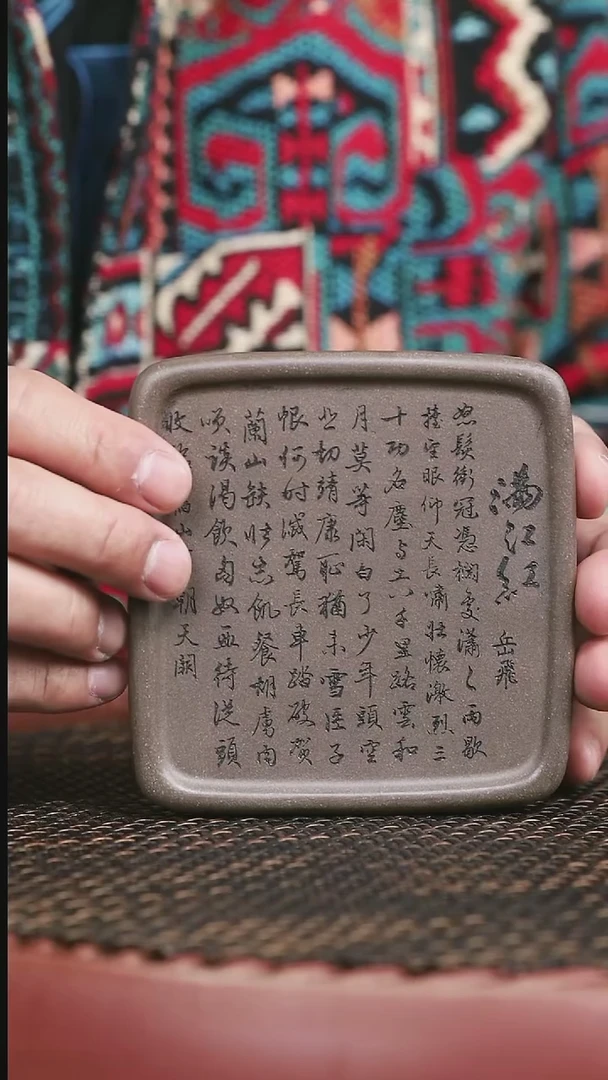 滿江紅 岳飛
怒髮衝冠憑欄處瀟〻雨歇
擡望眼仰天長嘯壯懷激烈三
十功名塵与土八千里路雲和
月莫等闲白了少年頭空
悲切靖康恥猶未雪臣子
恨何时滅駕長車踏破賀
蘭山缺壮志飢餐胡虜肉
咲談渴飲匈奴血待從頭
收山朝天闕